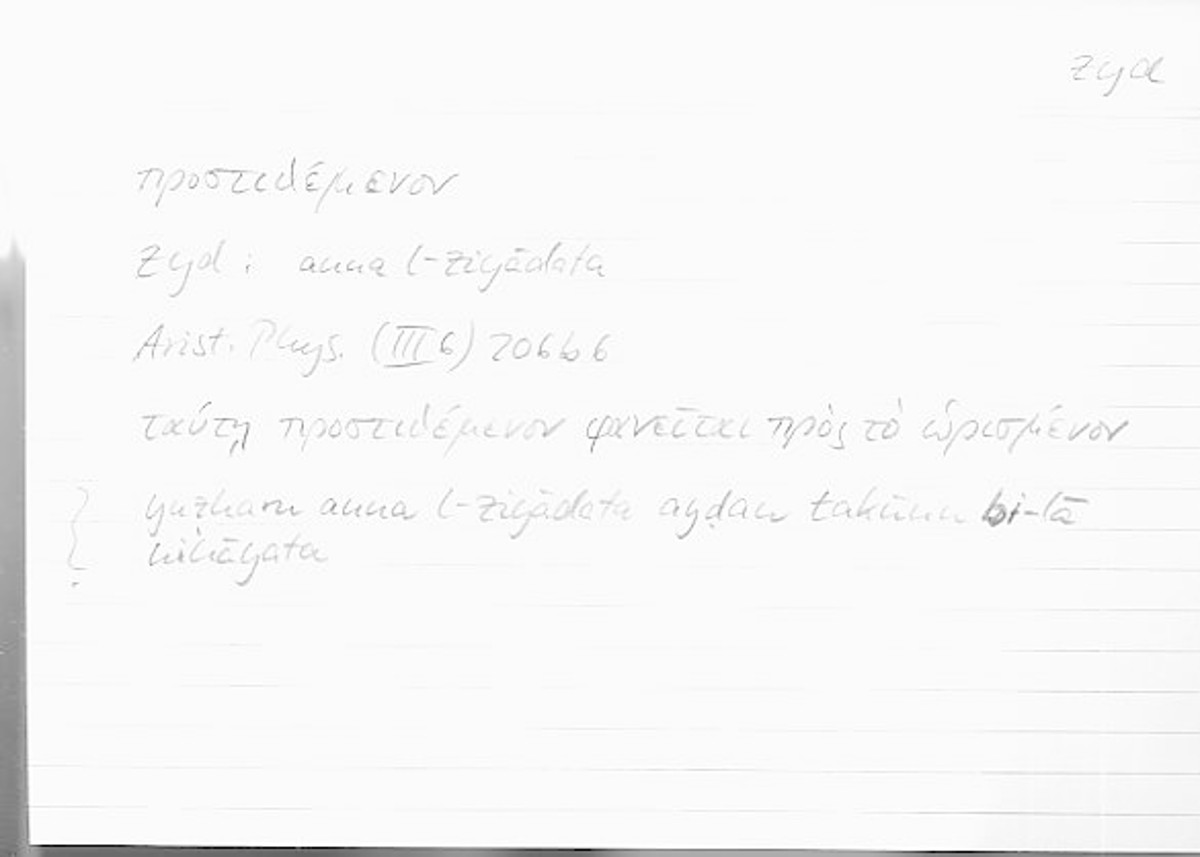 zyd
προστιθέμενον
Zyd : anna l-ziyādata
Arist. Phys. (III 6) 206b6
ταύτῃ προστιθέμενον φανεῖται πρὸς τὸ ὡρισμένον
yuẓharu anna l-ziyādata ayḍan takūnu bi-lā
nihāyata